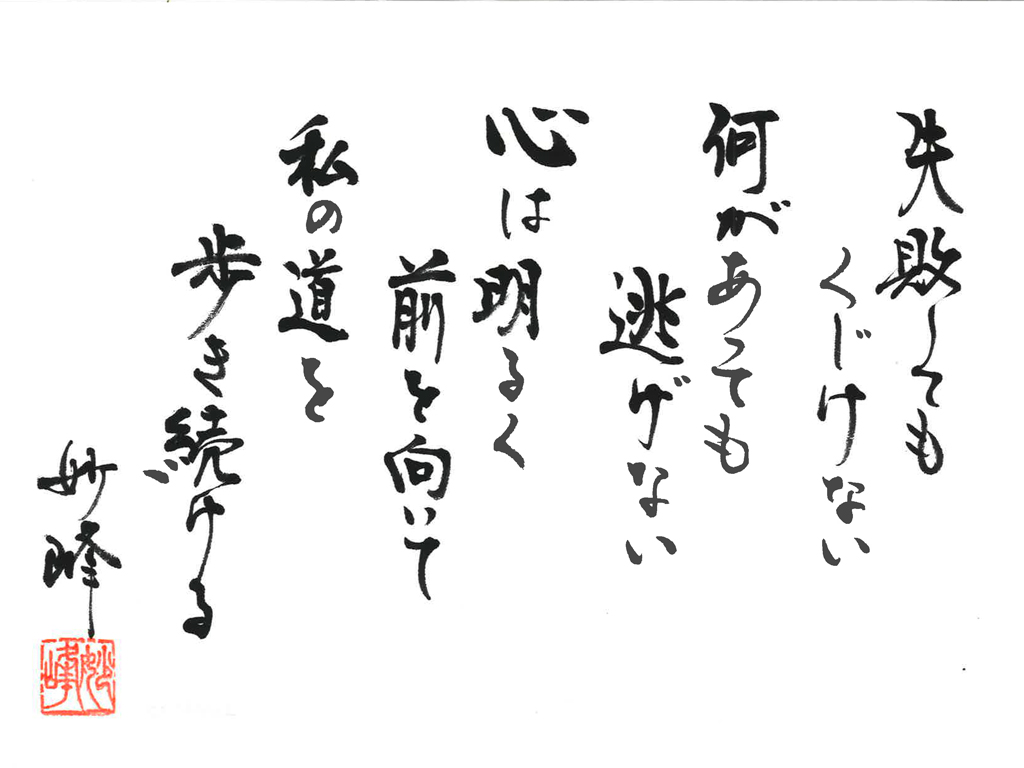 失敗しても
くじけない
何があっても
逃げない
心は明るく
前を向いて
私の道を
歩き続ける
妙峰
妙峰